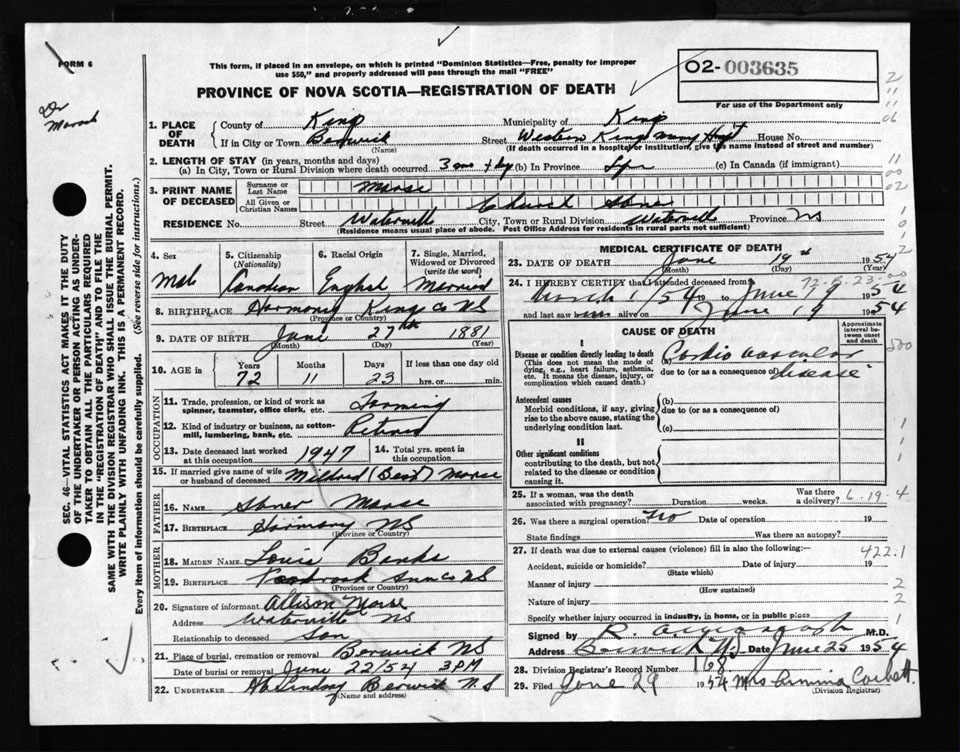 FORM 6
This form, if placed in an envelope, on which is printed "Dominion Statistics—Free, penalty for improper
use $50," and properly addressed will pass through the mail "FREE"
O2-003635
For use of the Department only
PROVINCE OF NOVA SCOTIA—REGISTRATION OF DEATH
Dr
1. PLACE OF DEATH
County of Kings Municipality of Kings
If in City or Town Berwick Street Western Kings Hospt House No.
(Name) (If death occurred in a hospital or institution, give the name instead of street and number)
2. LENGTH OF STAY (in years, months and days)
(a) In City, Town or Rural Division where death occurred 3 (b) In Province (c) In Canada (if immigrant)
3. PRINT NAME OF DECEASED
Surname or Last Name Morse
All Given or Christian Names Church Abner
RESIDENCE No. Street Waterville City, Town or Rural Division Waterville Province NS
(Residence means usual place of abode. Post Office Address for residents in rural parts not sufficient)
4. Sex
5. Citizenship (Nationality) Canadian
6. Racial Origin English
7. Single, Married, Widowed or Divorced (write the word) Married
8. BIRTHPLACE Harmony Kings Co NS
(Province or Country)
9. DATE OF BIRTH June 27th 1881
(Month) (Day) (Year)
10. AGE in Years Months Days If less than one day
72 11 23 hrs. or min.
OCCUPATION
11. Trade, profession, or kind of work as spinner, teamster, office clerk, etc. Farming
12. Kind of industry or business, as cotton-mill, lumbering, bank, etc. Retired
13. Date deceased last worked at this occupation 1947
14. Total yrs. spent in this occupation
15. If married give name of wife or husband of deceased Mildred (Best) Morse
FATHER
16. NAME Abner Morse
17. BIRTHPLACE Harmony NS
(Province or Country)
MOTHER
18. MAIDEN NAME Banks
19. BIRTHPLACE NS
(Province or Country)
20. Signature of informant Allison Morse
Address Waterville NS
Relationship to deceased Son
21. Place of burial, cremation or removal Berwick NS
Date of burial or removal June 22/54 3PM
22. UNDERTAKER Lindsay Berwick N.S
(Name and address)
MEDICAL CERTIFICATE OF DEATH
23. DATE OF DEATH June 19th 1954
(Month) (Day) (Year)
24. I HEREBY CERTIFY that I attended deceased from
March 1/54 19 to June 19 1954
and last saw him alive on June 19 1954
CAUSE OF DEATH
Approximate interval between onset and death
I
Disease or condition directly leading to death
(This does not mean the mode of dying, e.g., heart failure, asthenia, etc. It means the disease, injury, or complication which caused death.)
(a) Cardio vascular
due to (or as a consequence of) disease
Antecedent causes
Morbid conditions, if any, giving rise to the above cause, stating the underlying condition last.
(b)
due to (or as a consequence of)
(c)
II
Other significant conditions
contributing to the death, but not related to the disease or condition causing it.
25. If a woman, was the death associated with pregnancy? Duration weeks. Was there a delivery? 6-19-4
26. Was there a surgical operation? No Date of operation 19
State findings Was there an autopsy?
27. If death was due to external causes (violence) fill in also the following:- 422.1
Accident, suicide or homicide? Date of injury 19
(State which)
Manner of injury
(How sustained)
Nature of injury
Specify whether injury occurred in industry, in home, or in public place
Signed by R. M.D.
Address Berwick NS Date June 25 1954
28. Division Registrar's Record Number 168
29. Filed June 29 1954 Mrs Corbett.
(Division Registrar)
SEC. 46—VITAL STATISTICS ACT MAKES IT THE DUTY
OF THE UNDERTAKER OR PERSON ACTING AS UNDERTAKER
TO OBTAIN ALL THE PARTICULARS REQUIRED
IN THE "REGISTRATION OF DEATH" AND TO FILE THE
SAME WITH THE DIVISION REGISTRAR WHO SHALL ISSUE THE BURIAL PERMIT.
WRITE PLAINLY WITH UNFADING INK. THIS IS A PERMANENT RECORD.
Every item of information should be carefully supplied. (See reverse side for instructions.)